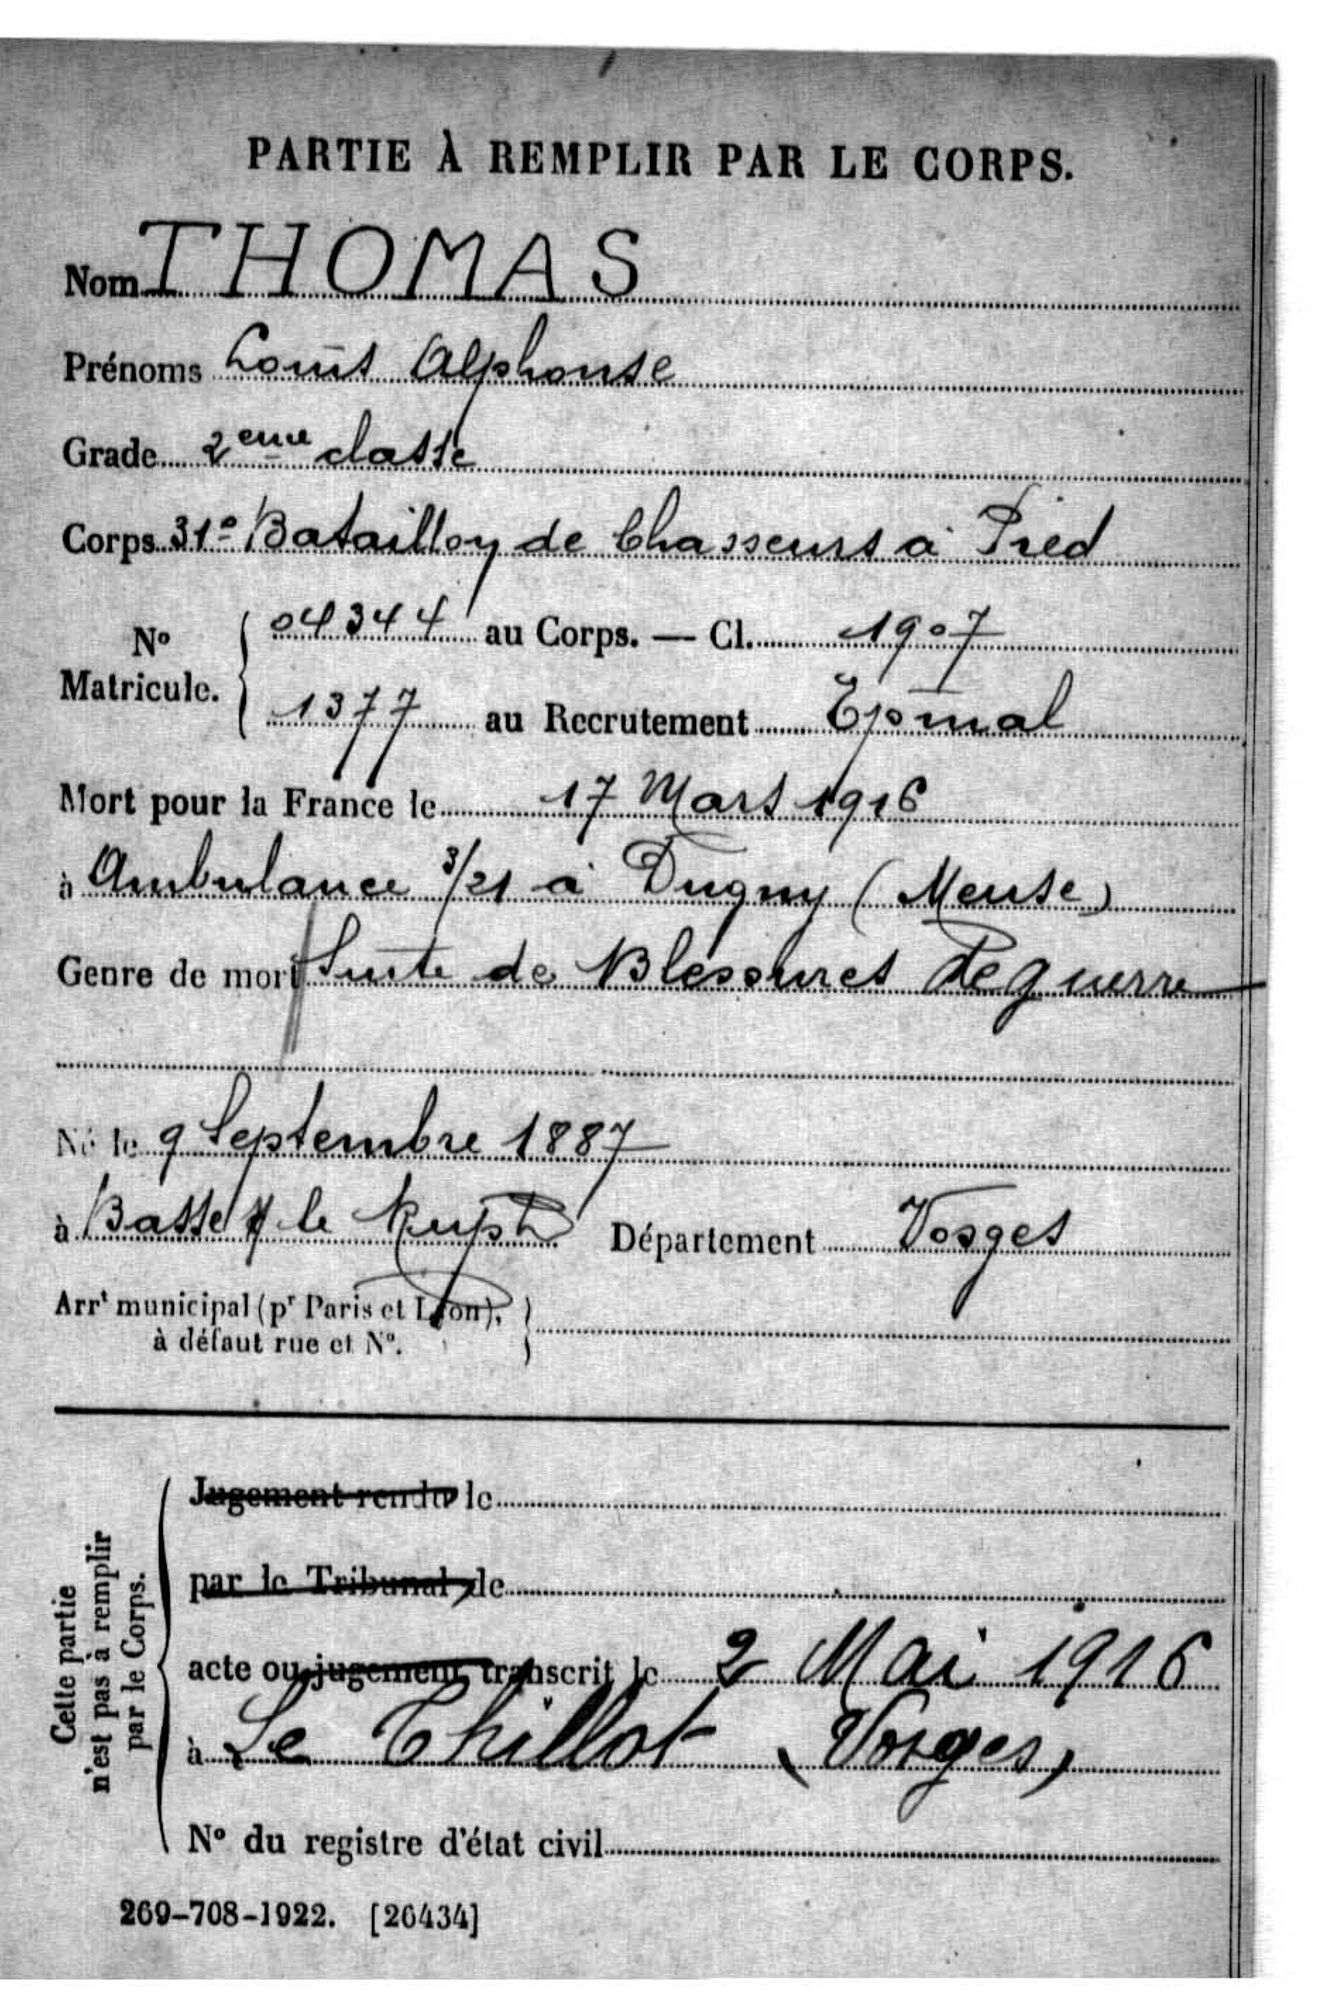 PARTIE À REMPLIR PAR LE CORPS.
Nom THOMAS
Prénoms Louis Alphonse
Grade 2eme classe
Corps 31e Bataillon de Chasseurs à Pied
No Matricule. { 04344 au Corps. — Cl. 1907
1377 au Recrutement Epinal
Mort pour la France le 17 Mars 1916
à Ambulance 3/21 à Dugny (Meuse)
Genre de mort Suite de Blessures de guerre
Né le 9 Septembre 1887
à Basse s/ le Rupt Département Vosges
Arrt municipal (pr Paris et Lyon), }
à défaut rue et No.
Cette partie
n'est pas à remplir
par le Corps.
Jugement rendu le
par le Tribunal de
acte ou jugement transcrit le 2 Mai 1916
à Le Thillot (Vosges)
No du registre d'état civil
269-708-1922. [26434]